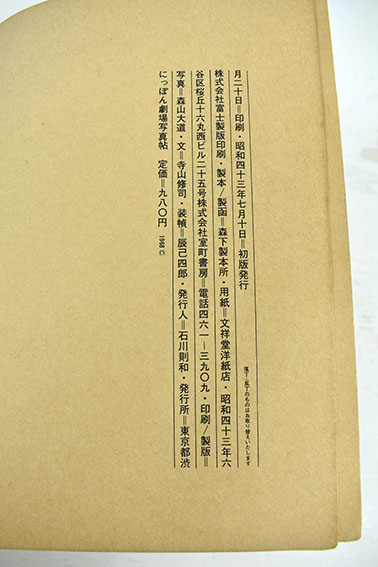 にっぽん劇場写真帖 定価＝九八〇円 1968 ©
写真＝森山大道・文＝寺山修司・装幀＝辰己四郎・発行人＝石川則和・発行所＝東京都渋
谷区桜丘十六丸西ビル二十五号株式会社室町書房＝電話四六一―三九〇九・印刷/製版＝
株式会社富士製版印刷・製本/製函＝森下製本所・用紙＝文祥堂洋紙店・昭和四十三年六
月二十日＝印刷・昭和四十三年七月十日＝初版発行
落丁・乱丁のものはお取り替えいたします